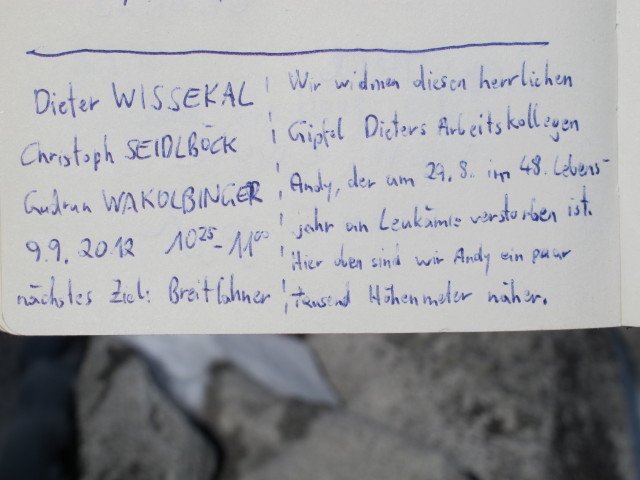 Dieter WISSEKAL
Christoph SEIDLBÖCK
Gudrun WAKOLBINGER
9.9.2012 10²⁵-11⁰⁰
nächstes Ziel: Breitlahner
Wir widmen diesen herrlichen
Gipfel Dieters Arbeitskollegen
Andy, der am 29.8. im 48. Lebens-
jahr an Leukämie verstorben ist.
Hier oben sind wir Andy ein paar
tausend Höhenmeter näher.